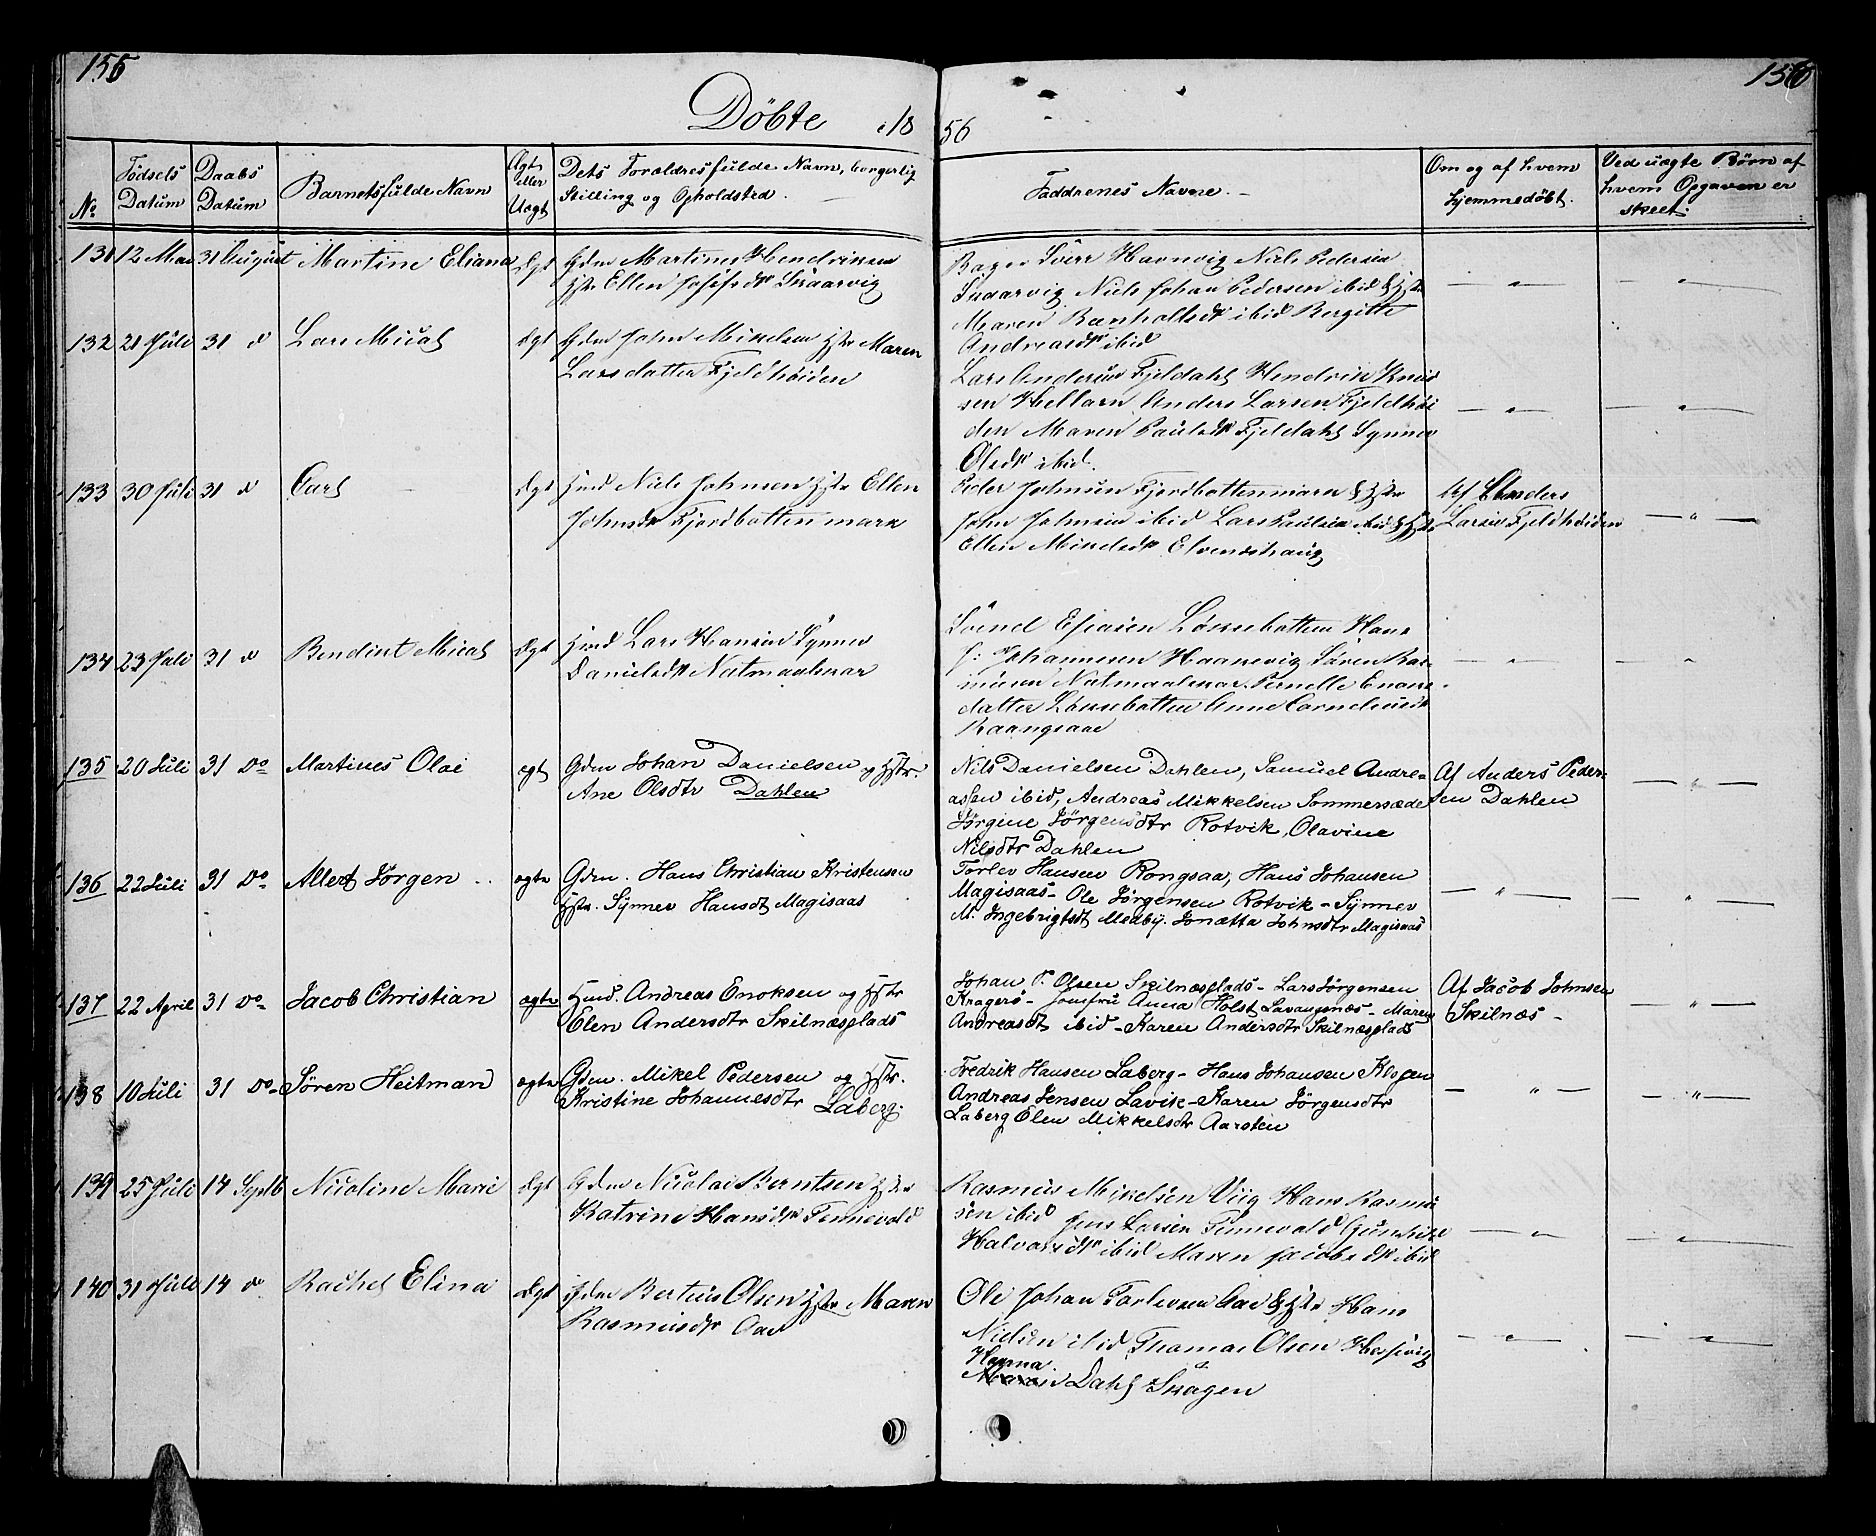 155
156
Döbte i 18
56
No
Födsels Datum
Daabs Datum
Barnets fulde Navn
Ægte eller Uægt
Dets Foraldres fulde Navn, borgerlig
Stilling og Opholdsted.
Faddrenes Navne.
Om og af hvem
hjemmedöbt.
Ved uægte Börn af
hvem Opgaven er
skeet.
131 12 Mai 31 August Martine Eliana Ægt Gdm Martinus Hendriksen
Hstr Ellen Josefsdr Skaarvig
Niels Pedersen
Skaarvig Niels Johan Pedersen ibid & Hstr
Maren ibid Bergitte
Andreasdr ibid
132 21 Juli 31 d Lars Micael Ægt Gdm John Mikelsen Hstr Maren
Larsdatter Fjeldhöiden
Lars Andersen Fjeldahl Hendrik Knud
sen Hellarn Anders Larsen Fjeldhöi
den Maren Paulsdr Fjeldahl Synnev
Olsdr ibid.
133 30 Juli 31 d Carl Ægt Hmd Niels Johnsen Hstr Ellen
Johnsdr Fjordbottenmark
Peder Johnsen Fjordbottenmark & Hstr
John Johnsen ibid Lars Paulsen ibid & Hstr
Ellen Mikelsdr Elveneshaug
Af Anders
Larsen Fjeldhöiden
134 23 Juli 31 d Bendint Micael Ægt Hmd Lars Hansen Synnev
Danielsdr
Svend Esiasen Hans
J: Johannesen Haanevig Sören Ras-
musen Pernelle Enoks
datter Anne Corneliusdr
135 20 Juli 31 Do Martines Olai egt Gdm Johan Danielsen og Hstr.
Ane Olsdtr Dahlen
Nils Danielsen Dahlen, Samuel Andrea
assen ibid, Andreas Mikkelsen Sommersæde
Jörgine Jörgensdtr Rotvik, Olavine
Nilsdtr Dahlen
Af Anders Peder-
sen Dahlen
136 22 Juli 31 Do Allert Jörgen ægte Gdm. Hans Christian Kristensen
Hstr. Synnev Hansdt Magisaas
Torlev Hansen Rongsaa, Hans Johansen
Magisaas - Ole Jörgensen Rotvik - Synnev
M. Ingebrigtsdt Medby. Jonætta Johnsdtr Magisaas
137 22 April 31 Do Jacob Christian ægte Hmd. Andreas Enoksen og Hstr
Elen Andersdtr Skilnæsplads
Johan P. Olsen Skilnæsplads - Lars Jörgensen
Kragers - Jomfru Anna Holst Lavangsnæs - Maren
Andreasdt ibid - Karen Andersdtr Skilnæsplads
Af Jacob Johnsen
Skilnæs -
138 10 Juli 31 Do Sören Heitman ægte Gdm. Mikel Pedersen og Hstr.
Kristine Johannesdtr Laberg.
Fredrik Hansen Laberg - Hans Johansen
Andreas Jensen Lavik - Karen Jörgensdtr
Laberg Elen Mikkelsdtr Aarsten
139 25 Juli 14 Septb Nicoline Marie Ægt Gdm Nicolai Berntsen Hstr
Katrine Hansdr Tennevold
Rasmus Mikelsen Viig Hans Rasmu
sen ibid Jens Larsen Tennevold
Halvorsdr ibid Maren Jacobsdr ibid
140 31 Juli 14 do Rachel Elina Ægt Gdm Berteus Olsen Hstr Maren
Rasmusdr Aae
Ole Johan Torlevsen Aae & Hstr Hans
Nielsen ibid Thomas Olsen
Hanna
Dahl Skogen